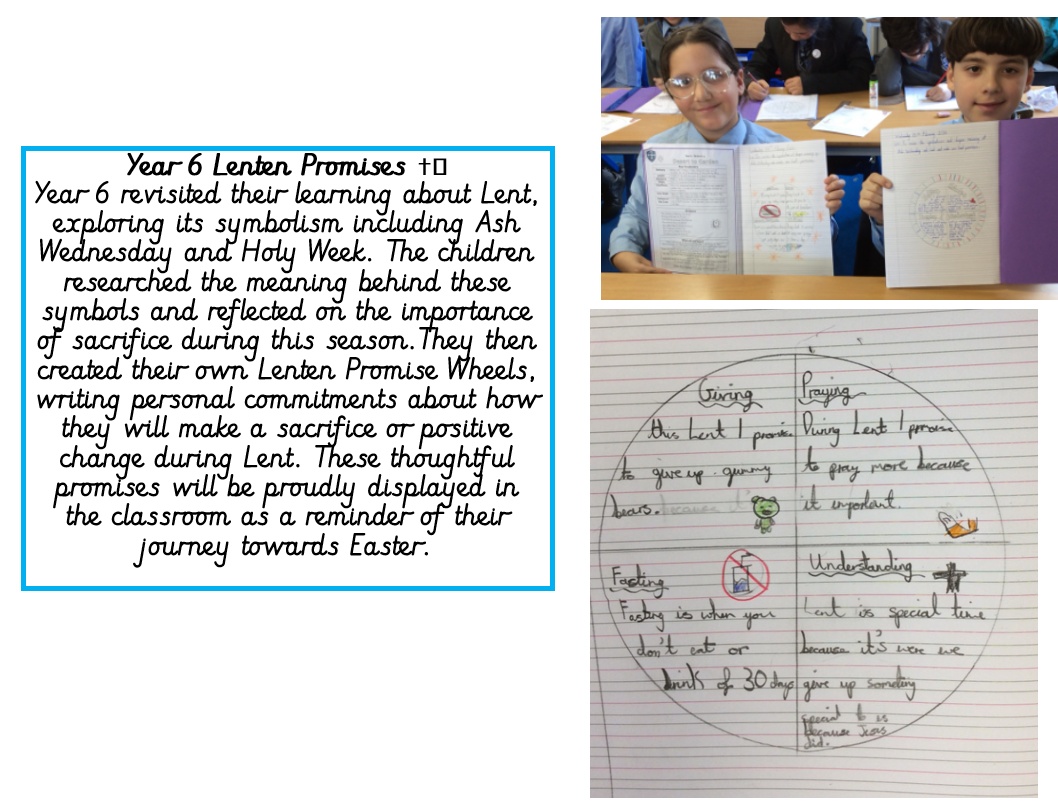 Year 6 Lenten Promises ✝▯
Year 6 revisited their learning about Lent,
exploring its symbolism including Ash
Wednesday and Holy Week. The children
researched the meaning behind these
symbols and reflected on the importance
of sacrifice during this season.They then
created their own Lenten Promise Wheels,
writing personal commitments about how
they will make a sacrifice or positive
change during Lent. These thoughtful
promises will be proudly displayed in
the classroom as a reminder of their
journey towards Easter.
Giving
this Lent I promise
to give up gummy
bears. because it's
Praying
During Lent I promise
to pray more because
it important.
Fasting
Fasting is when you
don't eat or
drink of 30 days
Understanding
Lent is special time
because it's were we
give up someting
special to us
because Jesus
did.